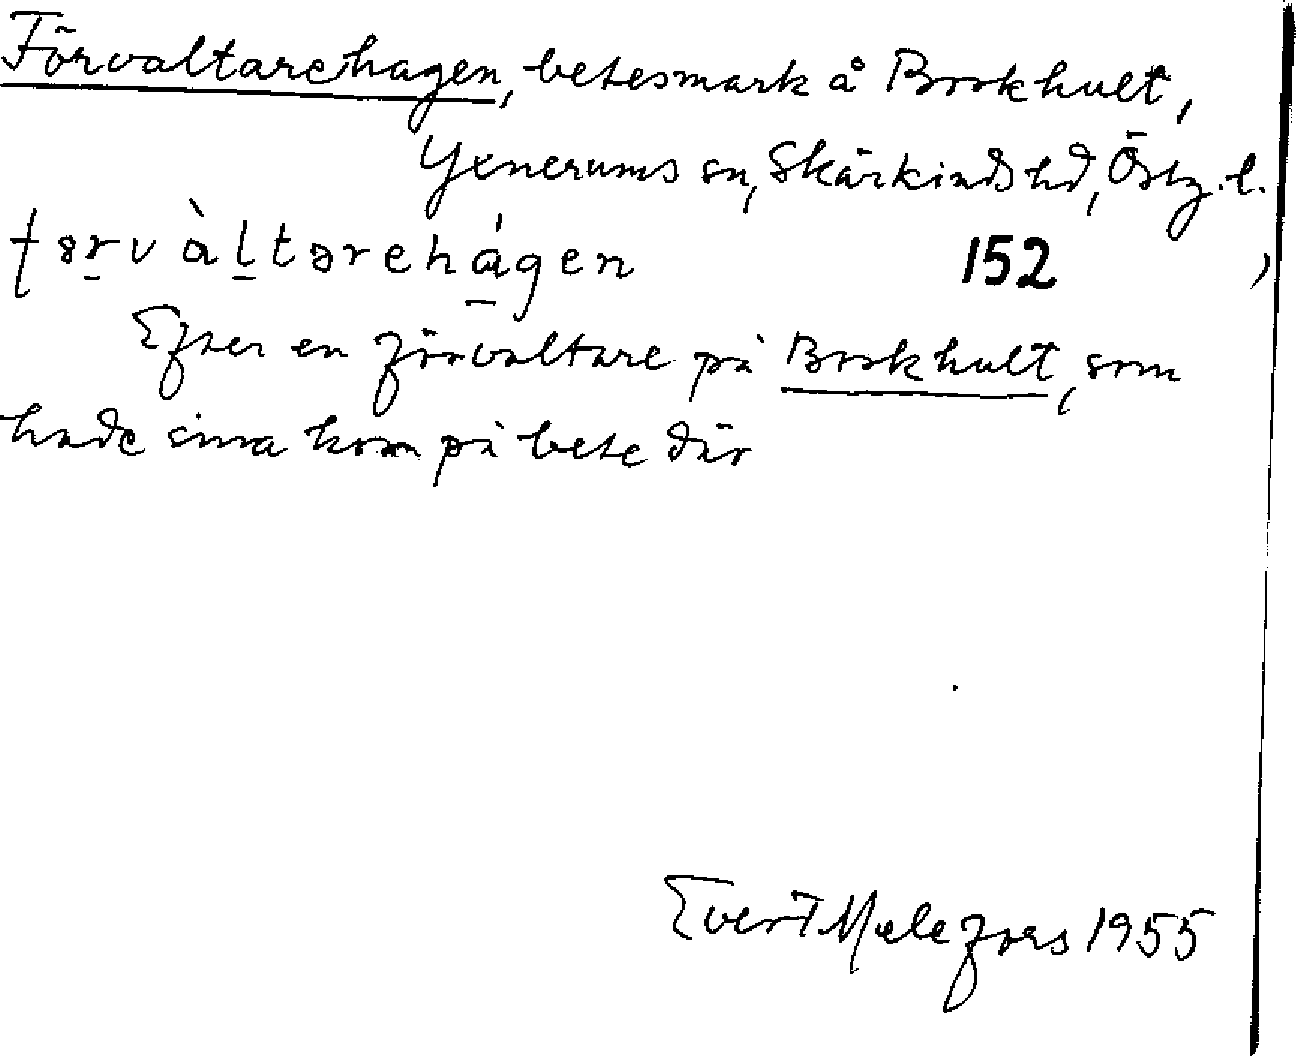 Förvaltarehagen, betesmark å Brokhult,
Yxnerums sn, Skärkinds hd, Östg. l.
fərvàltarehágen 152
Efter en förvaltare på Brokhult, som
hade sina kor på bete där
Evert Melefors 1955